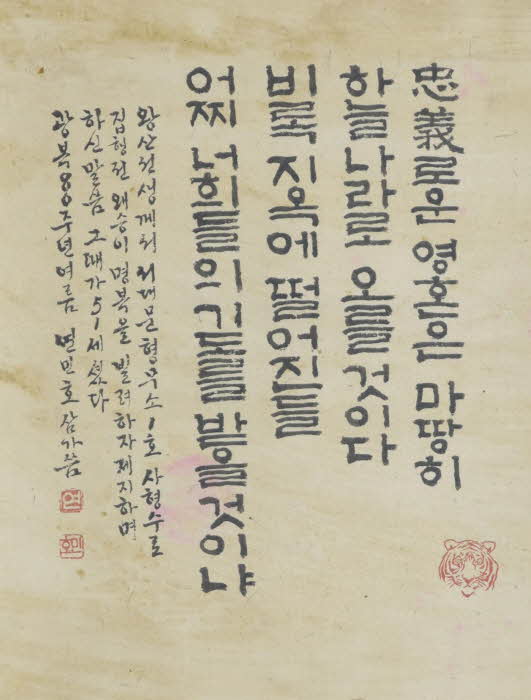 忠義로운 영혼은 마땅히
하늘나라로 오를 것이다
비록 지옥에 떨어진들
어찌 너희들의 기도를 받을 것이냐
왕산선생께서 서대문형무소 1호 사형수로
집행전 왜승이 명복을 빌려하자 제지하며
하신 말씀 그때가 51세 였다
광복80주년 여름 연민호 삼가씀